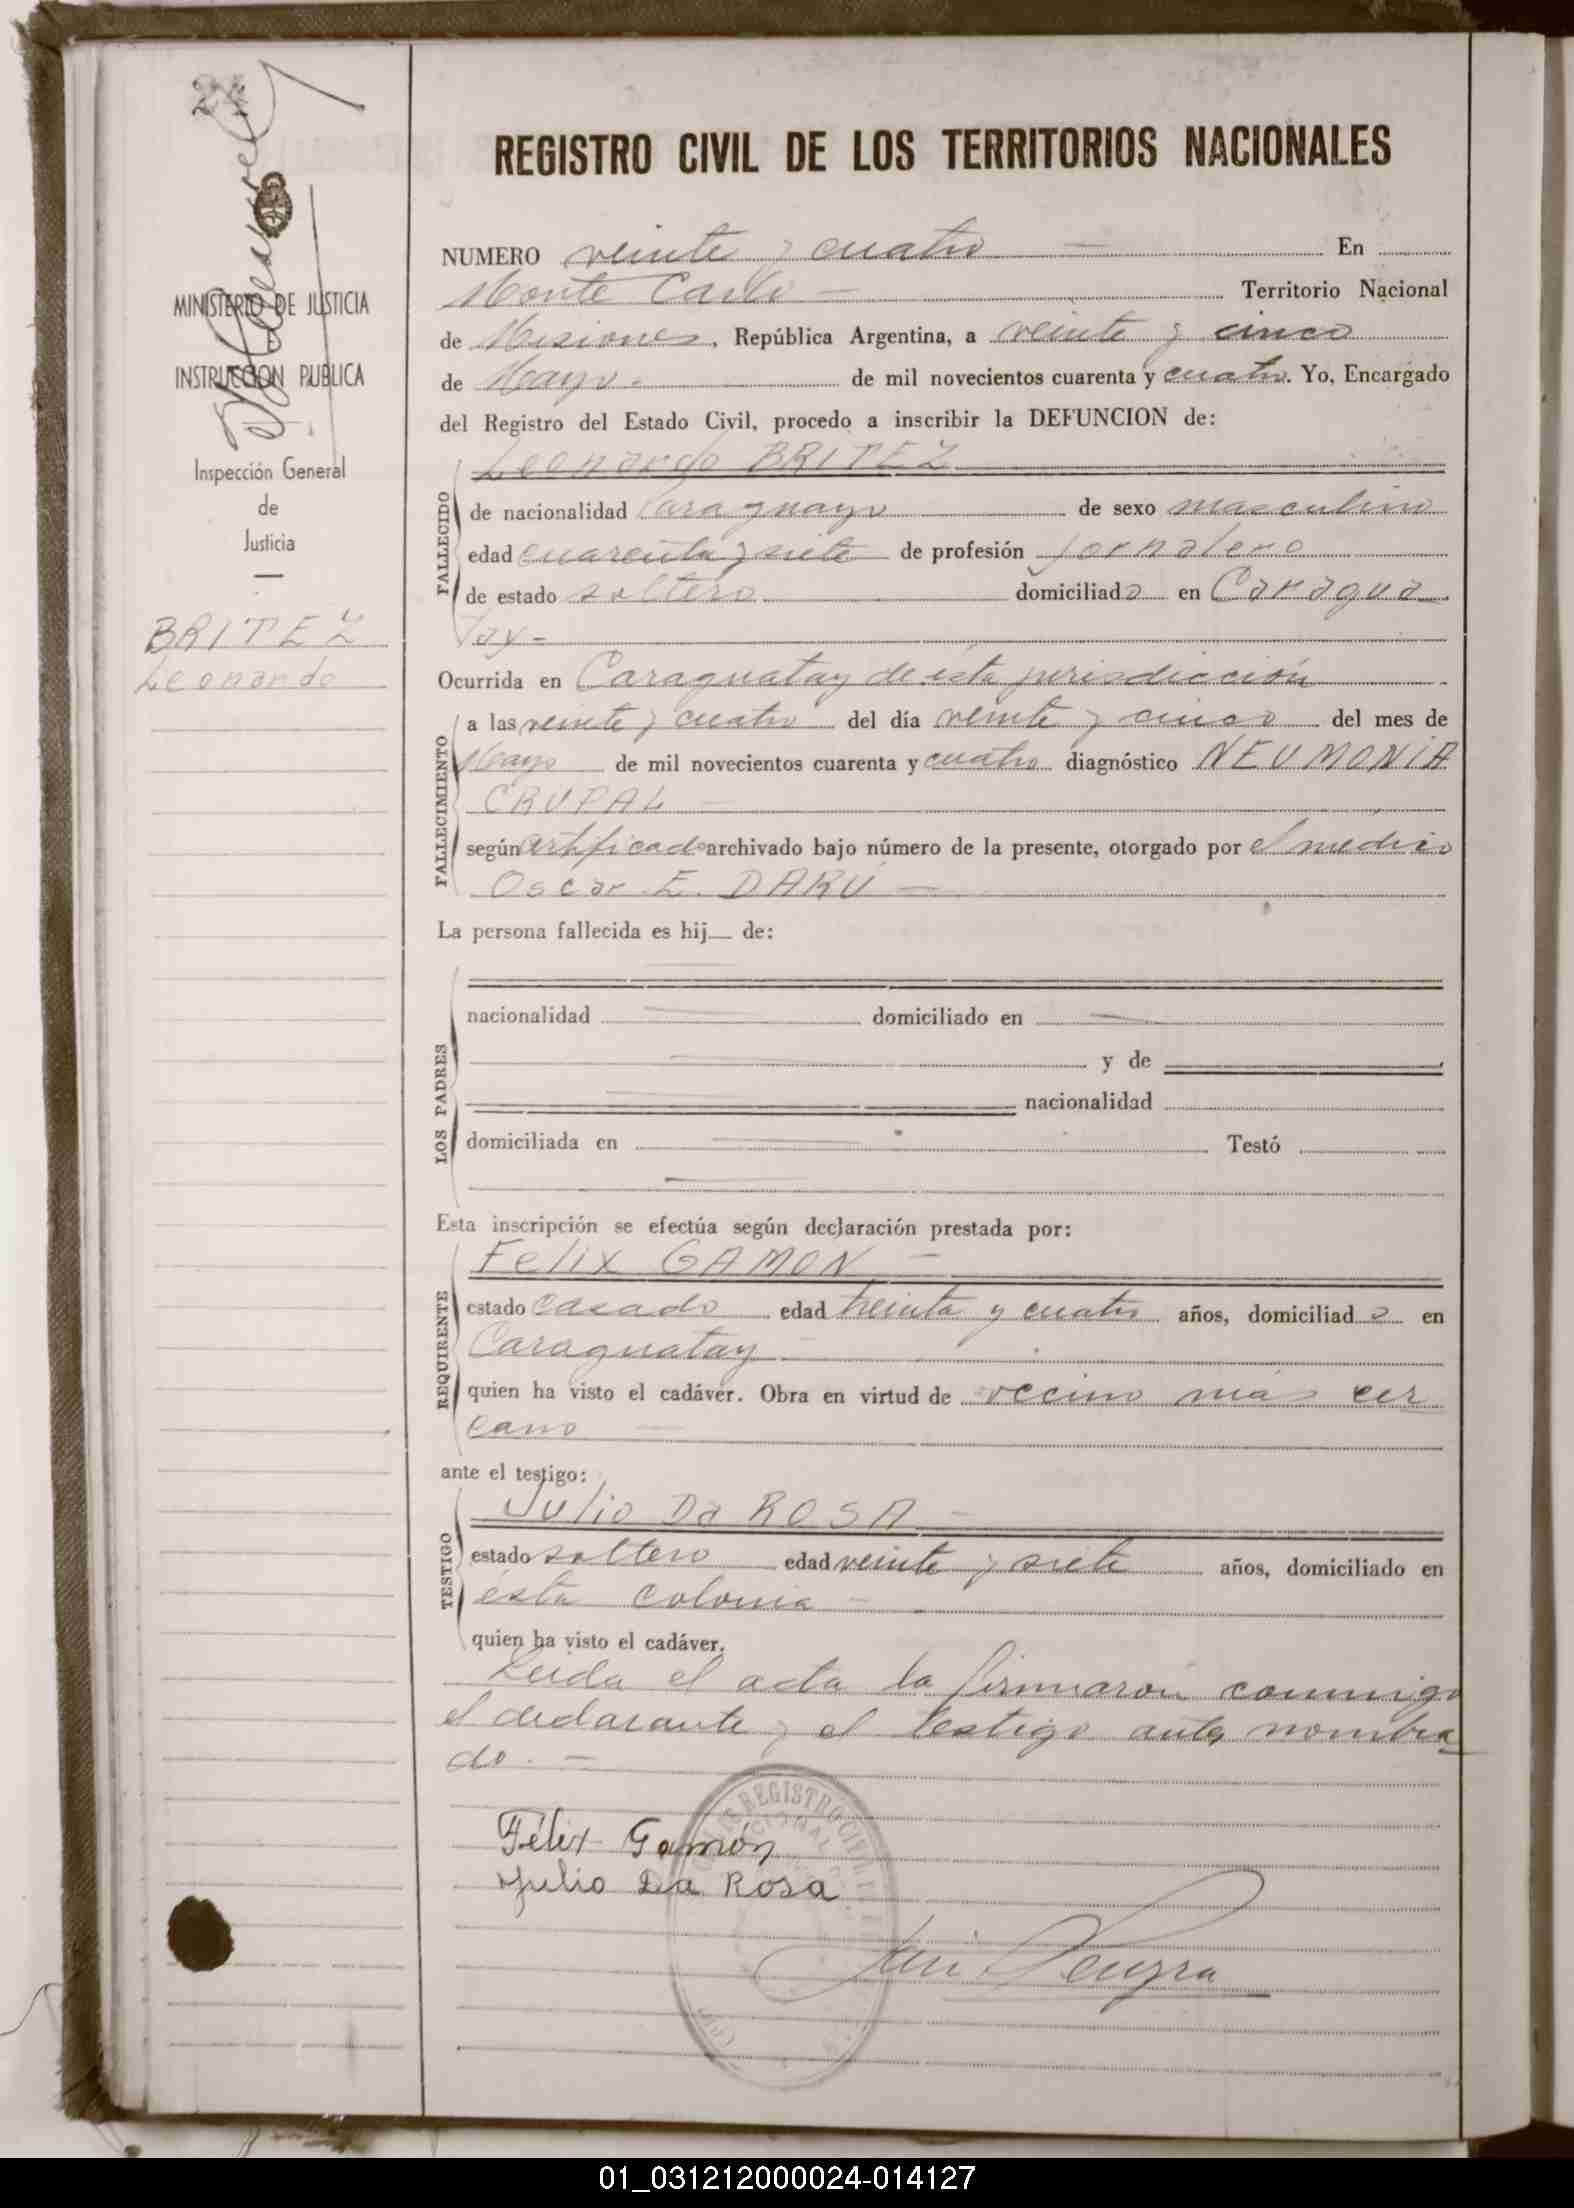 MINISTERIO DE JUSTICIA
INSTRUCCION PUBLICA
Inspección General
de
Justicia
BRITEZ
Leonardo
REGISTRO CIVIL DE LOS TERRITORIOS NACIONALES
NUMERO veinte y cuatro — En
Monte Carlo — Territorio Nacional
de Misiones, República Argentina, a veinte y cinco
de Mayo. de mil novecientos cuarenta y cuatro. Yo, Encargado
del Registro del Estado Civil, procedo a inscribir la DEFUNCION de:
Leonardo BRITEZ
FALLECIDO
de nacionalidad Paraguayo de sexo masculino
edad cuarenta y siete de profesión jornalero
de estado soltero domiciliado en Caragua
tay —
Ocurrida en Caraguatay de ésta jurisdicción
FALLECIMIENTO
a las veinte y cuatro del día veinte y cinco del mes de
Mayo de mil novecientos cuarenta y cuatro diagnóstico NEUMONIA
CRUPAL —
según certificado archivado bajo número de la presente, otorgado por el médico
Oscar E. DARÚ —
La persona fallecida es hij de:
LOS PADRES
nacionalidad — domiciliado en —
— y de
nacionalidad
domiciliada en — Testó
Esta inscripción se efectúa según declaración prestada por:
Felix GAMON —
REQUIRENTE
estado casado edad treinta y cuatro años, domiciliado en
Caraguatay —
quien ha visto el cadáver. Obra en virtud de vecino más cer
cano —
ante el testigo:
Julio Da ROSA —
TESTIGO
estado soltero edad veinte y siete años, domiciliado en
ésta colonia —
quien ha visto el cadáver.
Leida el acta la firmaron conmigo
el declarante y el testigo antes nombra
do. —
REGISTRO CIVIL
Félix Gamón
Julio Da Rosa
01_031212000024-014127